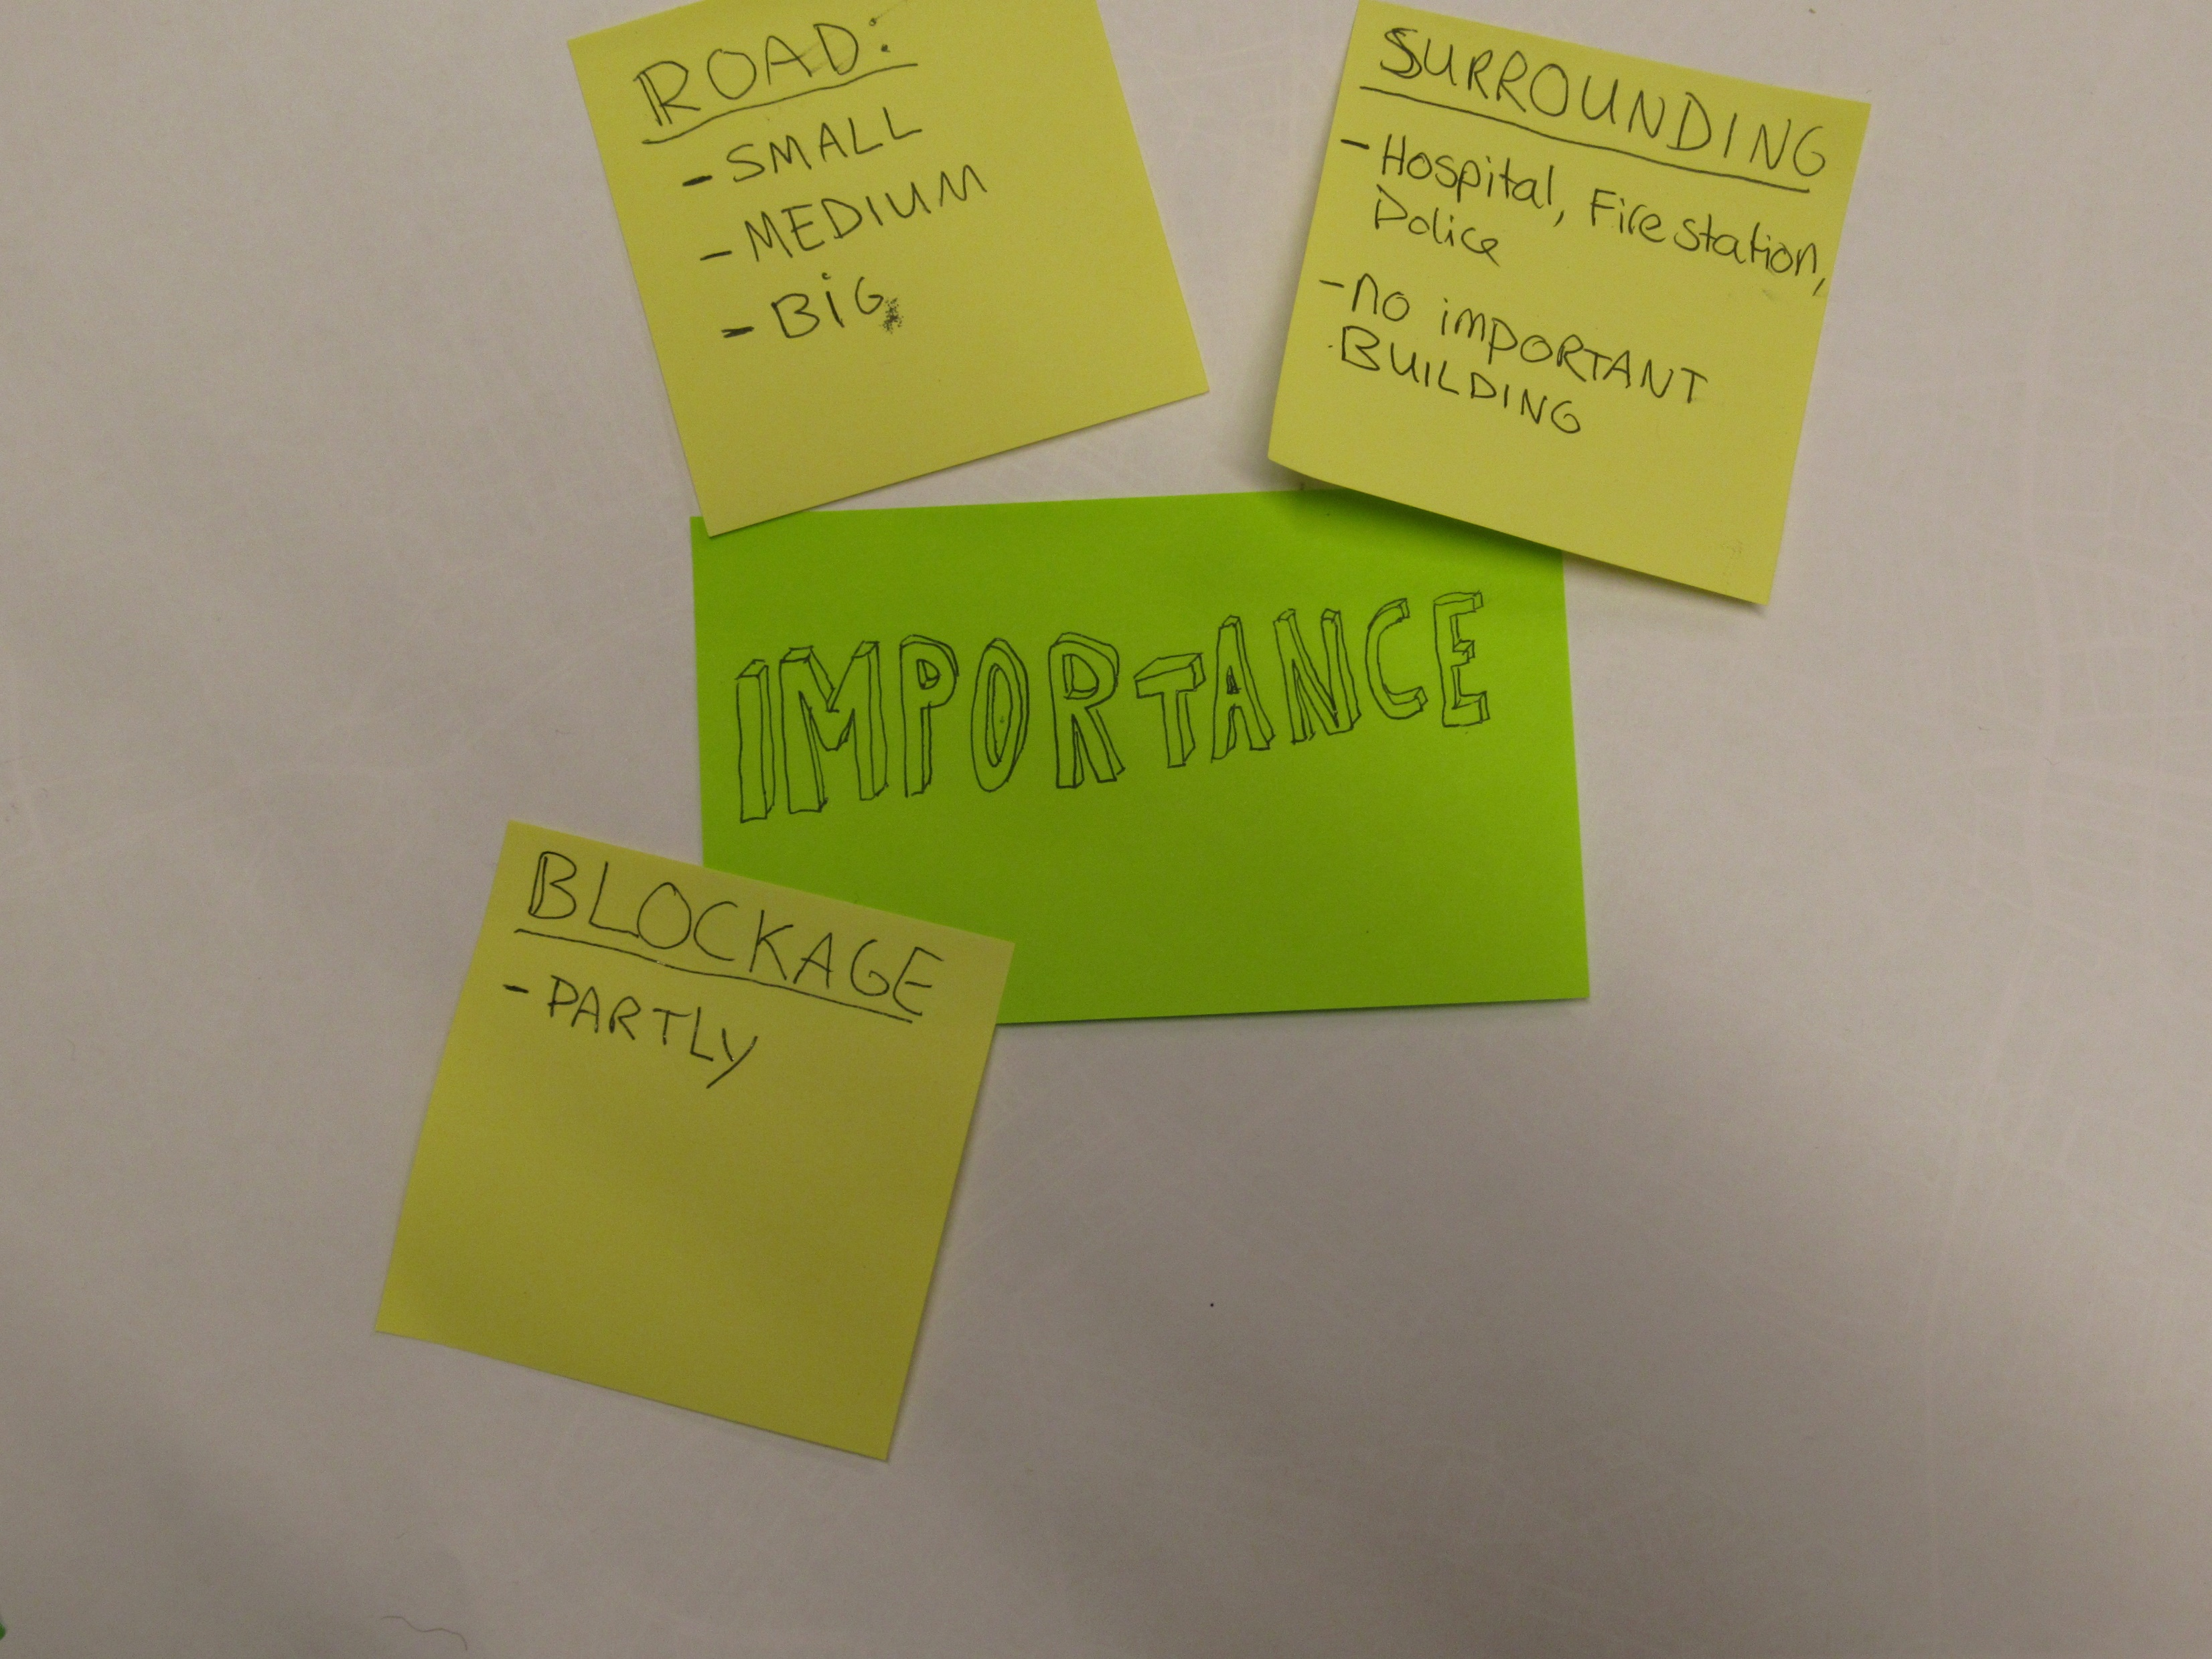 ROAD:
- SMALL
- MEDIUM
- BiG
SURROUNDING
- Hospital, Fire station,
Police
- no imPORTANT
BUILDING
IMPORTANCE
BLOCKAGE
- PARTLY